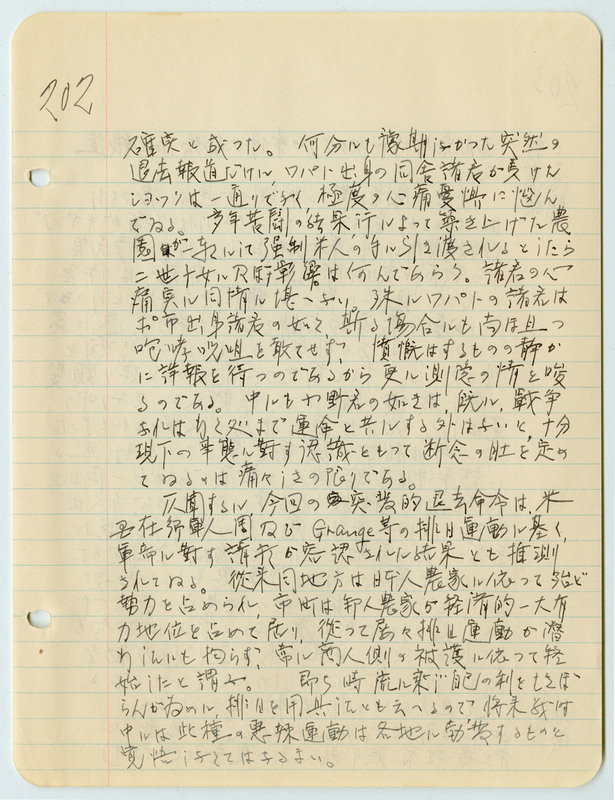 202
確実と成つた。 何分にも豫期なかつた突然の
退去報道だけに、ワパト出身の同舎諸君が受けた
ショックは一通りでなく 極度の心痛憂惧に悩ん
でゐる。 多年苦闘の結果 によつて築き上げた農
園が一朝にして強制 米人の手に引き渡されるとしたら
諸君の心
痛実に同情に堪へない。 殊にワパトの諸君は
ポ市出身諸君の如く 斯る場合にも尚ほ且つ
咆哮呪咀を敢てせず、 憤慨はするものの静か
に詳報を待つのであるから 更に惻隠の情を唆
るのである。 中にもや野君の如きは、既に、戦争
まで運命を共にする外はないと、十分
現下の事態に対する認識をもつて 断念の肚を定め
てゐるは痛々しさの限りである。
仄聞するに、今回の突発的退去命令は、米
在郷軍人団及び Grange等の排日運動に基く、
軍部に対す 請願が容認された結果とも推測
されてゐる。 従来同地方は日本人農家に依つて殆ど
勢力を占められ、市町は邦人農家が経済的一大有
力地位を占めて居り、従つて屡々排日運動が潜
行したにも拘らず、常に商人側の被護に依つて終
始したと謂ふ。 即ち時流に乗じ自己の利をむさぼ
らんが為めに、排日を用具としたとも云へるので 将来我は
中には此種の悪辣運動は各地に勃発するものと
覚悟なくてはなるまい。